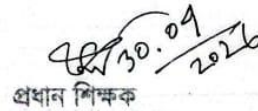 30.04
2026
প্রধান শিক্ষক